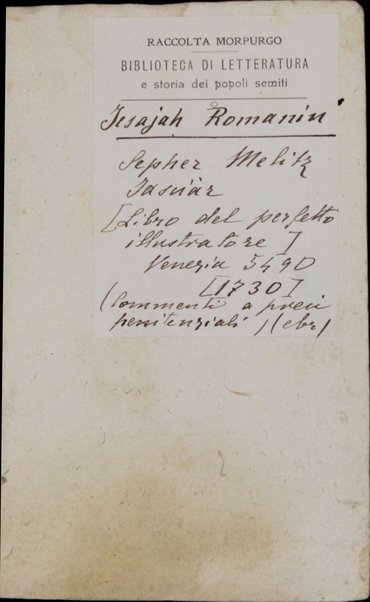 RACCOLTA MORPURGO
BIBLIOTECA DI LETTERATURA
e storia dei popoli semiti
Jesajah Romanin
Sepher Melitz
[Libro del perfetto
illustratore]
Venezia 5490
[1730]
(Commenti a preci
penitenziali) (ebr)